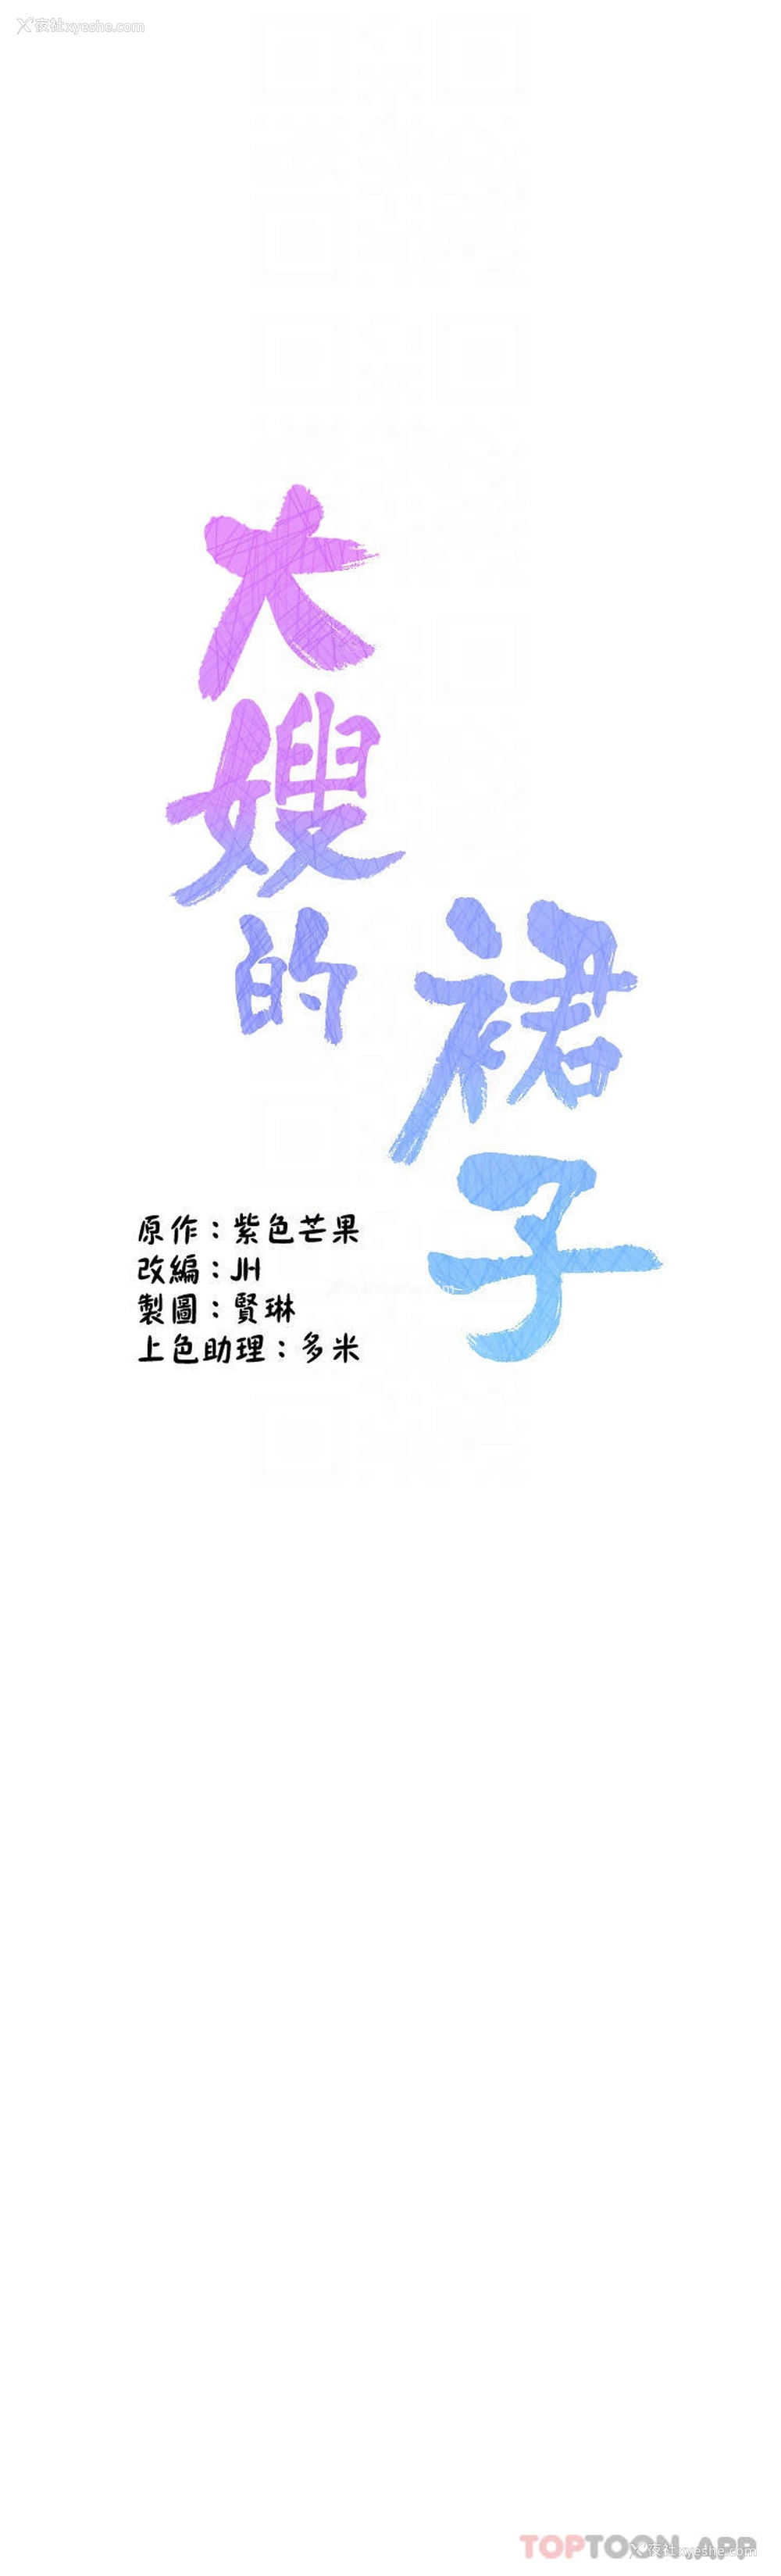 夜社xyeshe.com
大嫂的
裙子
原作：紫色芒果
改編：JH
製圖：賢琳
上色助理：多米
TOPTOON.APP
夜社xyeshe.com